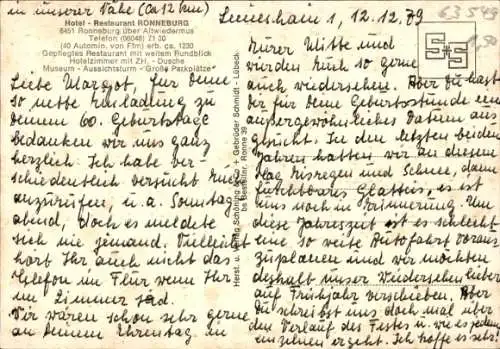 in unserer Nähe (Ca 12 km)
Hotel - Restaurant RONNEBURG
6451 Ronneburg über Altwiedermus
Telefon (06048) 71 30
(40 Automin. von Ffm) erb. ca. 1230
Gepflegtes Restaurant mit weitem Rundblick
Hotelzimmer mit ZH. - Dusche
Museum - Aussichtsturm - Große Parkplätze
Liebe Margot, für Deine
so nette Einladung zu
Deinem 60. Geburtstage
bedanken wir uns ganz
herzlich. Ich habe ver-
schiedentlich versucht Euch
anzurufen, u. a. Sonntag
abend, doch es meldete
sich nie jemand. Vielleicht
hört Ihr auch nicht das
Telefon im Flur wenn Ihr
im Zimmer seid.
Wir wären schon sehr gerne
an Deinem Ehrentag in
Herst. u. Verlag Schöning & Co + Gebrüder Schmidt - Lübeck
Ronne 39
1, 12.12.79
63549
Eurer Mitte und
würden Euch so gerne
auch wiedersehen. Aber Du hast
Dir für Deine Geburtsstunde ein
außergewöhnliches Datum aus
gesucht. In den letzten beiden
Jahren hatten wir an diesem
Tag Eisregen und Schnee, dann
furchtbares Glatteis, es ist
uns noch in Erinnerung. Um
diese Jahreszeit ist es schlecht
eine so weite Autofahrt voraus
zuplanen und wir möchten
deshalb unser Wiedersehen lieber
auf Frühjahr verschieben. Aber
Du schreibst uns doch mal über
den Verlauf des Festes u. wie es jedem
einzelnen ergeht. Ich hoffe es sehr